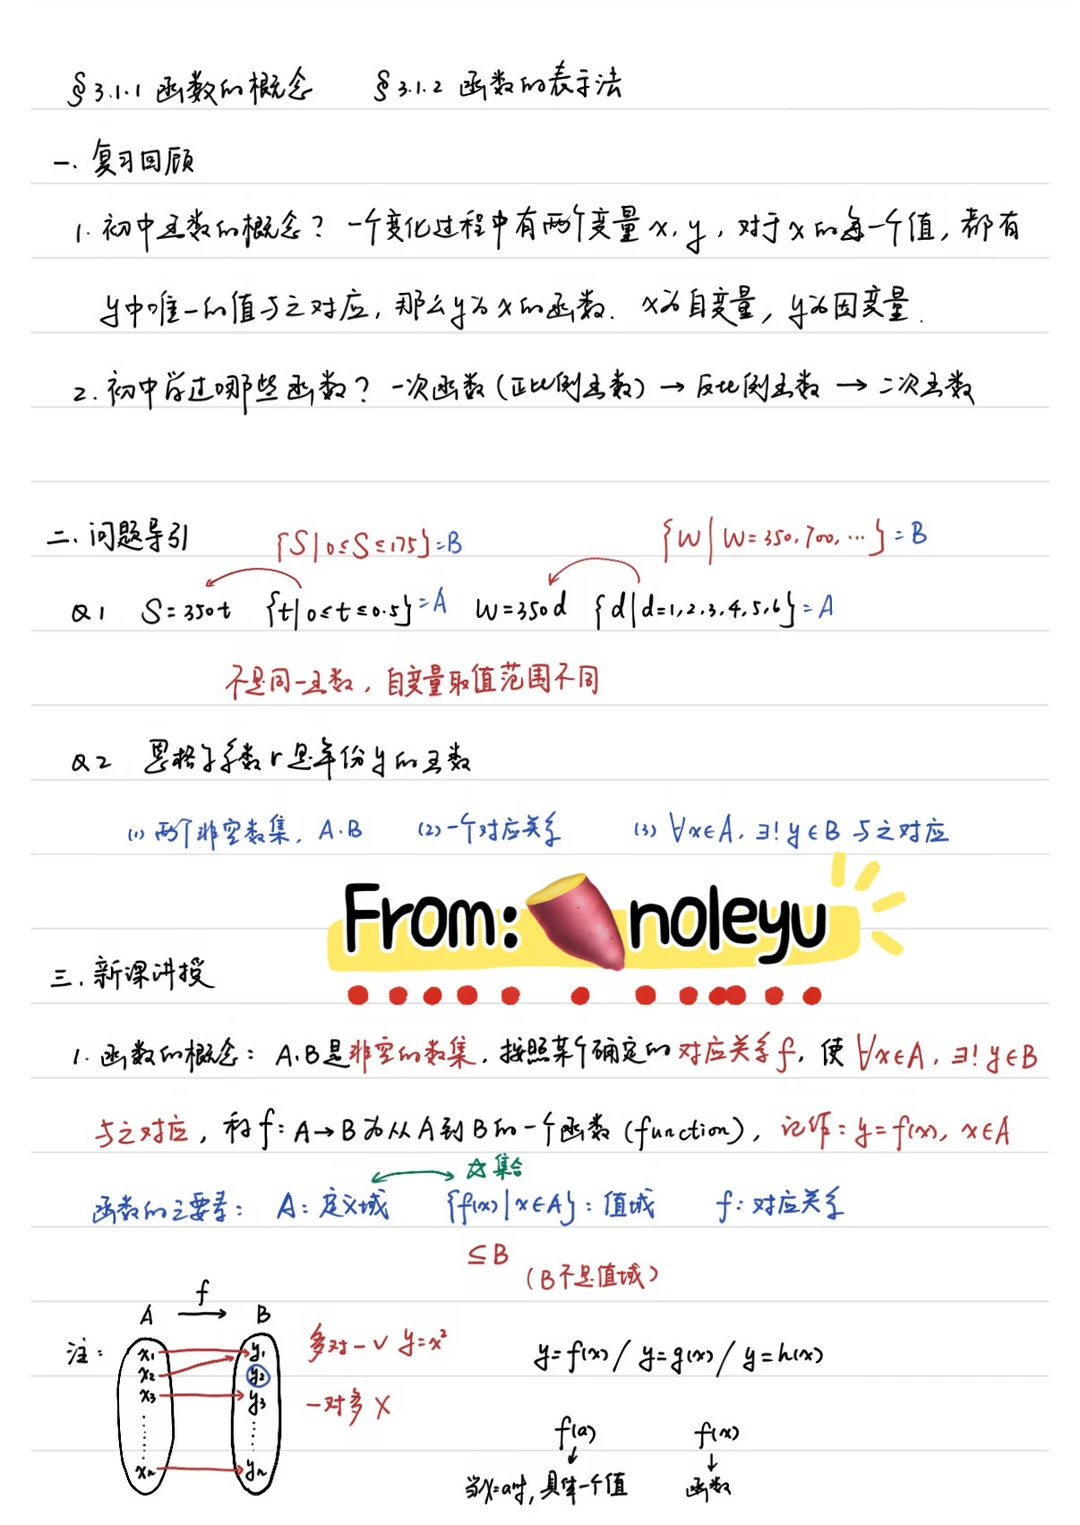 §3.1.1 函数的概念 §3.1.2 函数的表示法
一. 复习回顾
1. 初中函数的概念？一个变化过程中有两个变量x, y, 对于x的每一个值, 都有
y中唯一的值与之对应, 那么y为x的函数. x为自变量, y为因变量.
2. 初中学过哪些函数？一次函数(正比例函数) → 反比例函数 → 二次函数
二. 问题导引 {S|0≤S≤175}=B {W|W=350,700,…}=B
Q1 S=350t {t|0≤t≤0.5}=A W=350d {d|d=1,2,3,4,5,6}=A
不是同一函数, 自变量取值范围不同
Q2 恩格尔系数r是年份y的函数
(1) 两个非空数集, A.B (2) 一个对应关系 (3) ∀x∈A, ∃! y∈B 与之对应
From: noleyu
三. 新课讲授
1. 函数的概念: A.B是非空的数集, 按照某个确定的对应关系f, 使∀x∈A, ∃! y∈B
与之对应, 称f: A→B为从A到B的一个函数(function), 记作: y=f(x), x∈A
☆集合
函数的三要素: A: 定义域 {f(x)|x∈A}: 值域 f: 对应关系
⊆B (B不是值域)
f
A → B
注: x₁ y₁ 多对一√ y=x² y=f(x) / y=g(x) / y=h(x)
x₂ y₂
x₃ y₃ 一对多 X
f(a) f(x)
xₙ yₙ
当x=a时, 具体一个值 函数